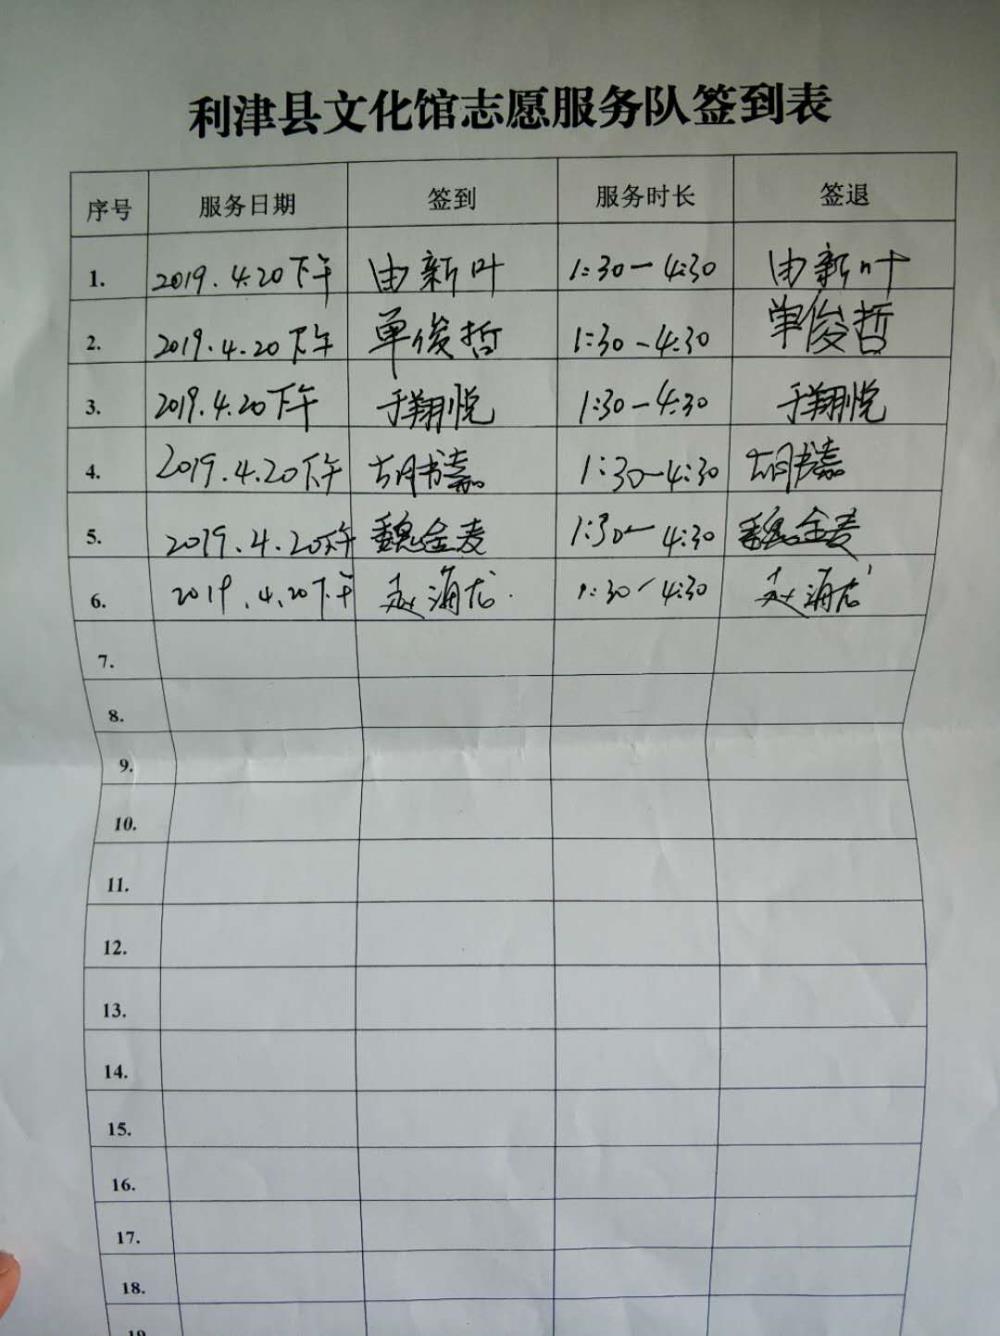 利津县文化馆志愿服务队签到表
序号 服务日期 签到 服务时长 签退
1. 2019.4.20下午 由新叶 1:30-4:30 由新叶
2. 2019.4.20下午 单俊哲 1:30-4:30 单俊哲
3. 2019.4.20下午 于翔悦 1:30-4:30 于翔悦
4. 2019.4.20下午 胡书嘉 1:30-4:30 胡书嘉
5. 2019.4.20下午 魏金麦 1:30-4:30 魏金麦
6. 2019.4.20下午 赵海龙 1:30-4:30 赵海龙
7.
8.
9.
10.
11.
12.
13.
14.
15.
16.
17.
18.
19